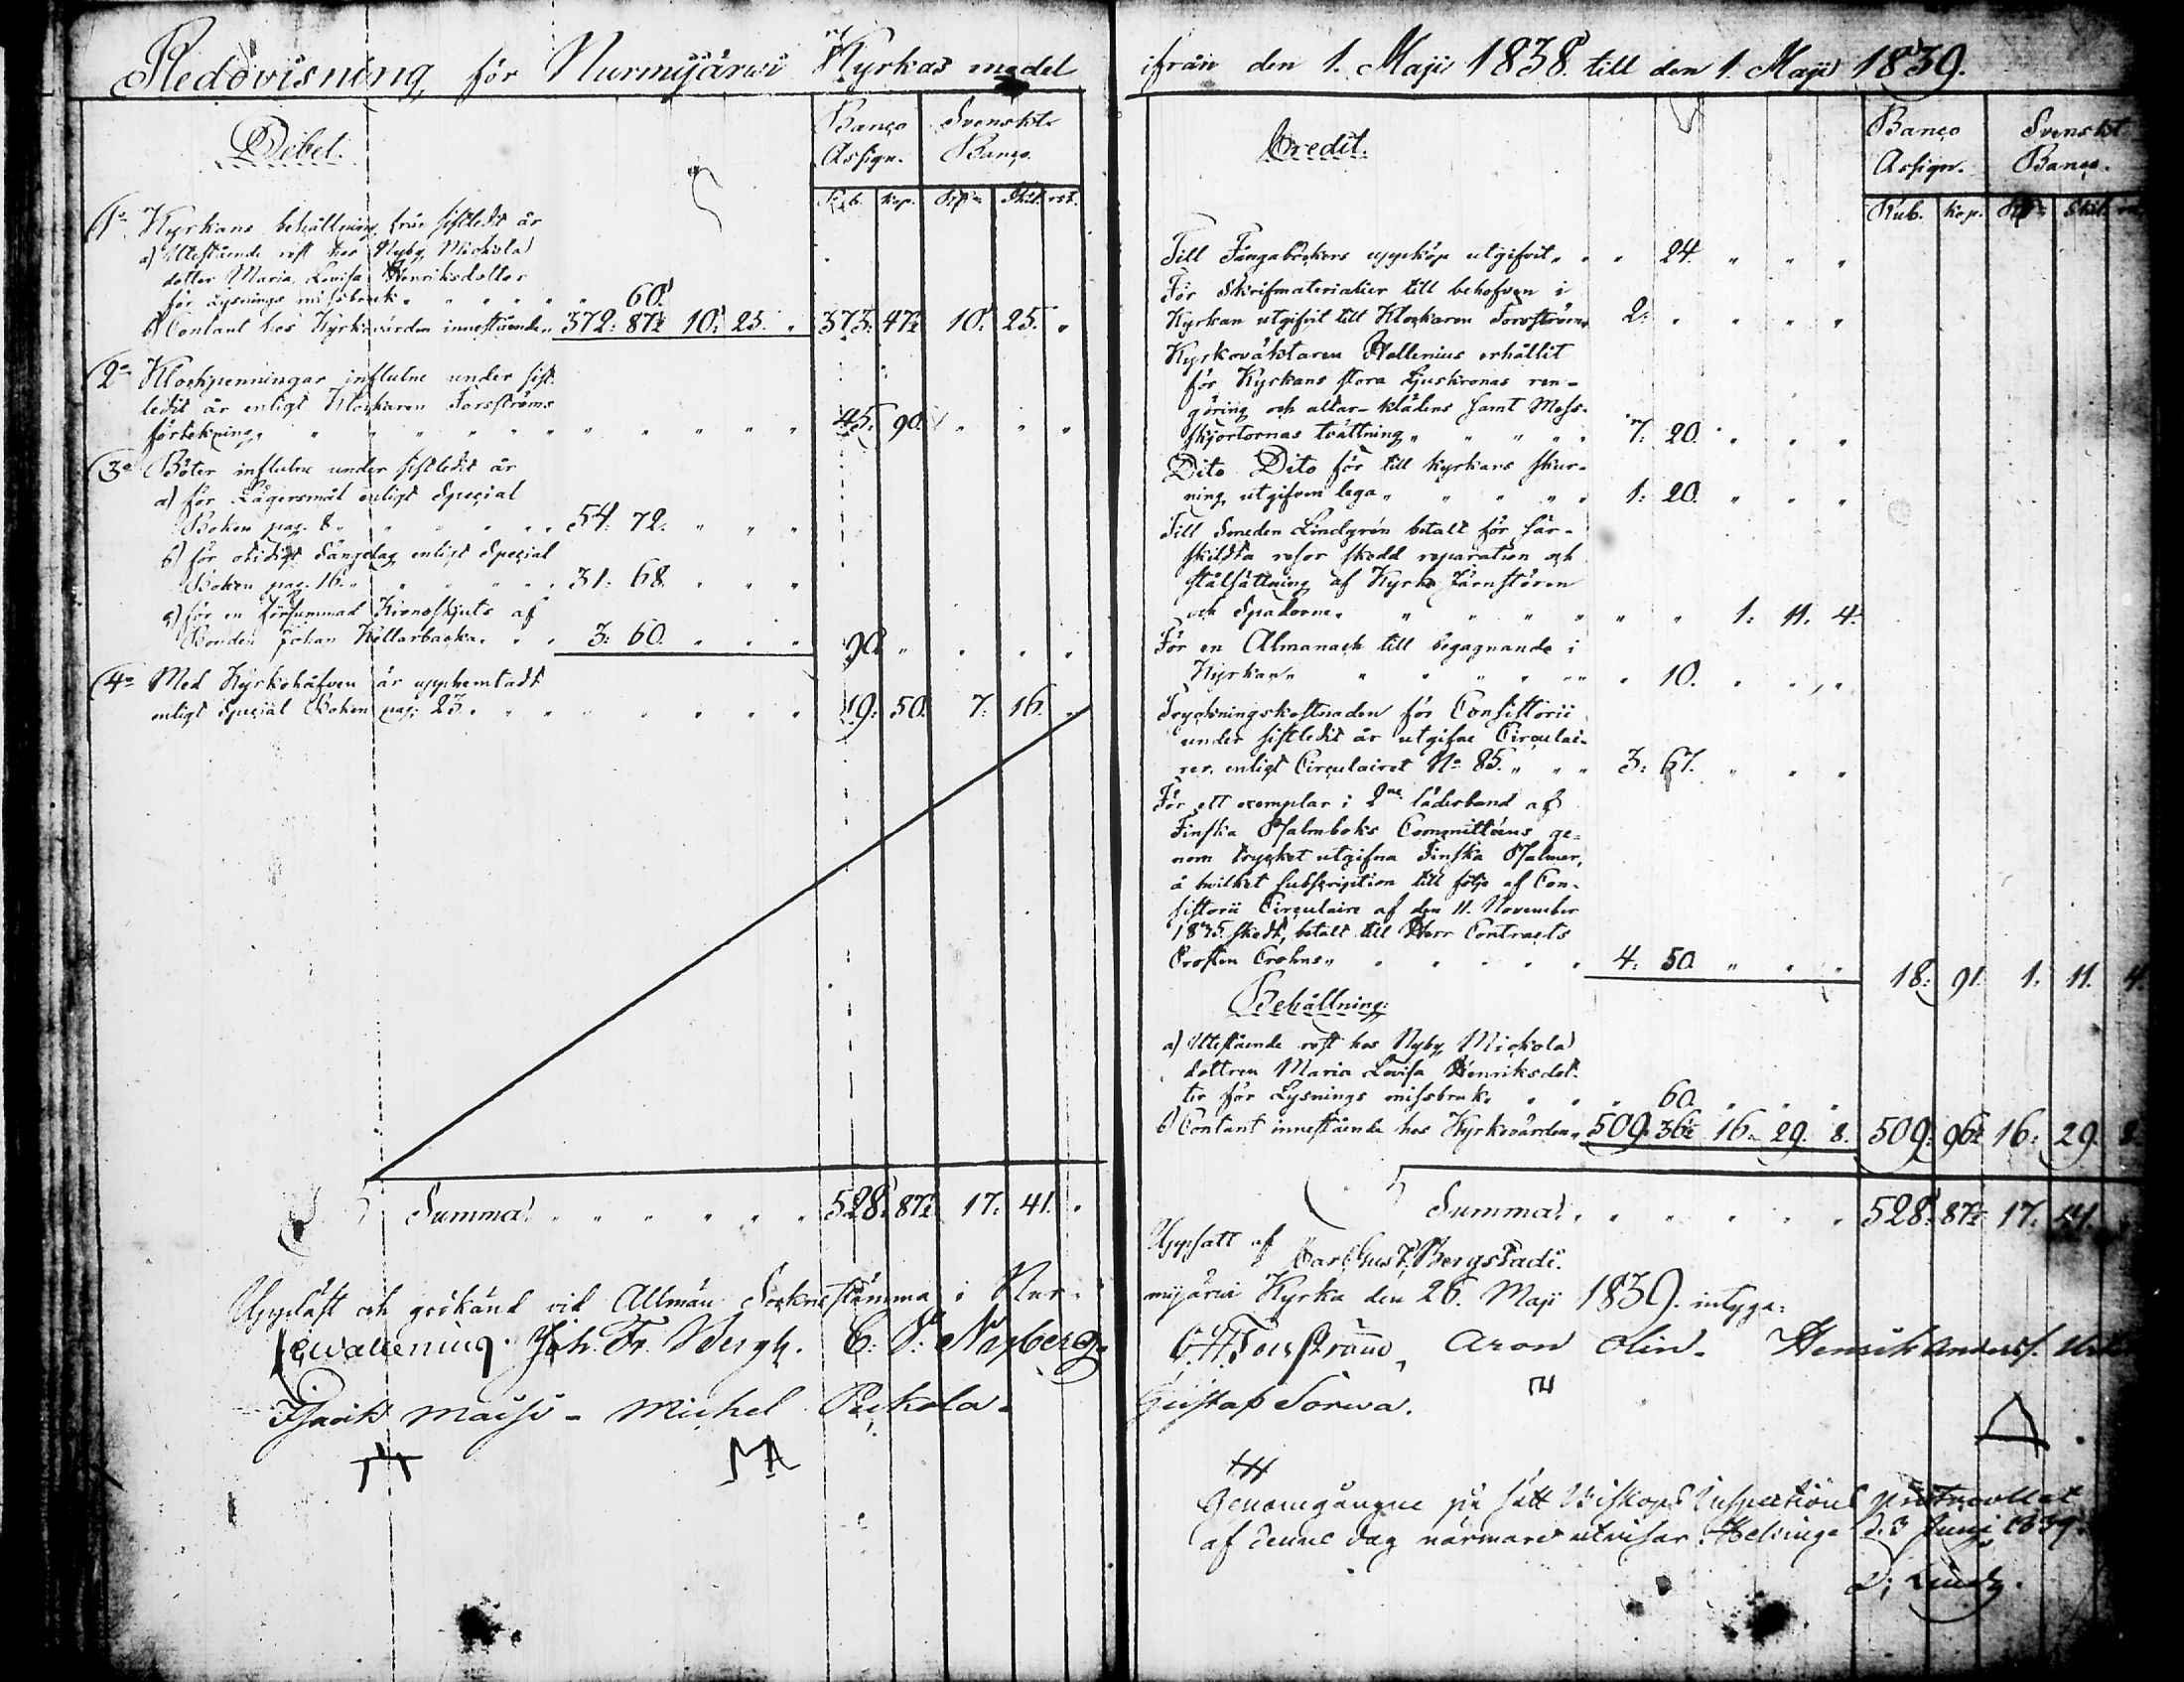 Redovisning för Nurmijärwi Kyrkas medel
Debet.
Banco Assign. Svenskt Banco.
Rub. kop. Rdr Skil. rst.
1o Kyrkans behållning från sistledt år
a) Utestående rest hos Nyby Mickola
dotter Maria Lovisa Henriksdotter
för Lysnings missbruk " " " " " 60.
b) Contant hos Kyrkovärden innestående " 372: 87½ 10: 25. " 373: 47½ 10: 25. "
2o Klockpenningar influtne under sist-
ledit år enligt Klockaren Forsströms
förtekning " " " " " " 45: 90. " " "
3o Böter influtne under sistledit år
a) för Lägersmål enligt Special
Boken pag. 8 " " " " " 54: 72. " " "
b) för otidigt Sängelag enligt Special
Boken pag. 16. " " " " 31: 68. " " "
c) för en försummad Kronoskjuts af
Bonden Johan Kellarbacka. " " 3: 60. " " " 90. " " " "
4o Med Kyrkohåfven är upphemtadt
enligt Special Boken pag: 23. " " " " " 19: 50. 7: 16. "
Summa. " " " " " 528: 87½ 17: 41. "
Uppläst och godkänd vid Allmän Sockne stämma i Nur-
Joh. Fr. Bergh. C. F. Nyberg.
Isaack Maisi - Michel Pukola.
MA
ifrån den 1. Maji 1838. till den 1. Maji 1839.
Credit.
Banco Assign. Svenskt Banco.
Rub. kop. Rdr Skil. rst.
Till Fångaböckers uppköp utgifvit " " " 24. " " "
För Skrifmaterialier till behofven i
Kyrkan utgifvit till Klockaren Forsström " 2: " " " "
Kyrkoväktaren Hellenius erhållit
för Kyrkans stora Ljuskronas ren-
göring och altar-klädens samt Mess-
skjortornas tvättning " " " " 7: 20. " " "
Dito Dito för till kyrkans skur-
ning utgifven lega " " " " 1: 20. " " "
Till Smeden Lindgrén betalt för sär-
skildta resor skedd reparation och
stålsättning af Kyrko Järnstören
och Spadorne. " " " " " " 1: 11. 4.
För en Almanach till begagnande i
Kyrkan " " " " " " 10. " " "
Tryckningskostnaden för Consistorii
under sistledit år utgifne Circulai-
rer, enligt Circulairet No 85. " " " 3: 67. " " "
För ett exemplar i 2ne läderband af
Finska Psalmboks Committéens ge-
nom trycket utgifna Finska Psalmer,
å hvilket subscription till följe af Con-
sistorii Circulaire af den 11. November
1835. skedt, betalt till Herr Contracts
Prosten Crohns " " " " " 4: 50. " " " 18: 91. 1: 11. 4.
Behållning:
a) Utestående rest hos Nyby Mickola
dottren Maria Lovisa Henriksdot-
ter för Lysnings missbruk. " " " 60. " " "
b) Contant innestående hos Kyrkovärden " 509: 36½ 16: 29. 8. 509: 96½ 16: 29. 8.
Summa. " " " " " " 528: 87½ 17: 41.
Uppsatt af Carl Gust. Bergstadi.
mijärwi Kyrka den 26. Maji 1839. intyga:
Forsström, Aron Olin. Henrik Anderss.
Gustaf Sorwa.
Genomgångne på sätt Biskops Inspections Protocollet
af denne dag närmare utvisar. Helsinge d. 3 Junij 1839.